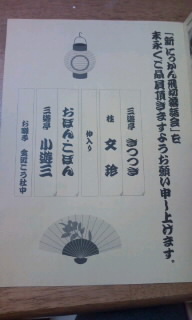 「新にっかん飛切落語会」を
末永くご贔屓頂きますようお願い申し上げます。
三遊亭 きつつき
桂 文珍
仲入り
おぼん・こぼん
三遊亭 小遊三
お囃子